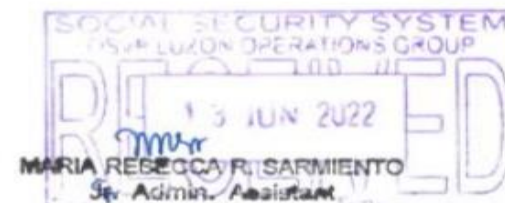 SOCIAL SECURITY SYSTEM
LUZON OPERATIONS GROUP
RECEIVED
13 JUN 2022
MARIA REBECCA R. SARMIENTO
Sr. Admin. Assistant